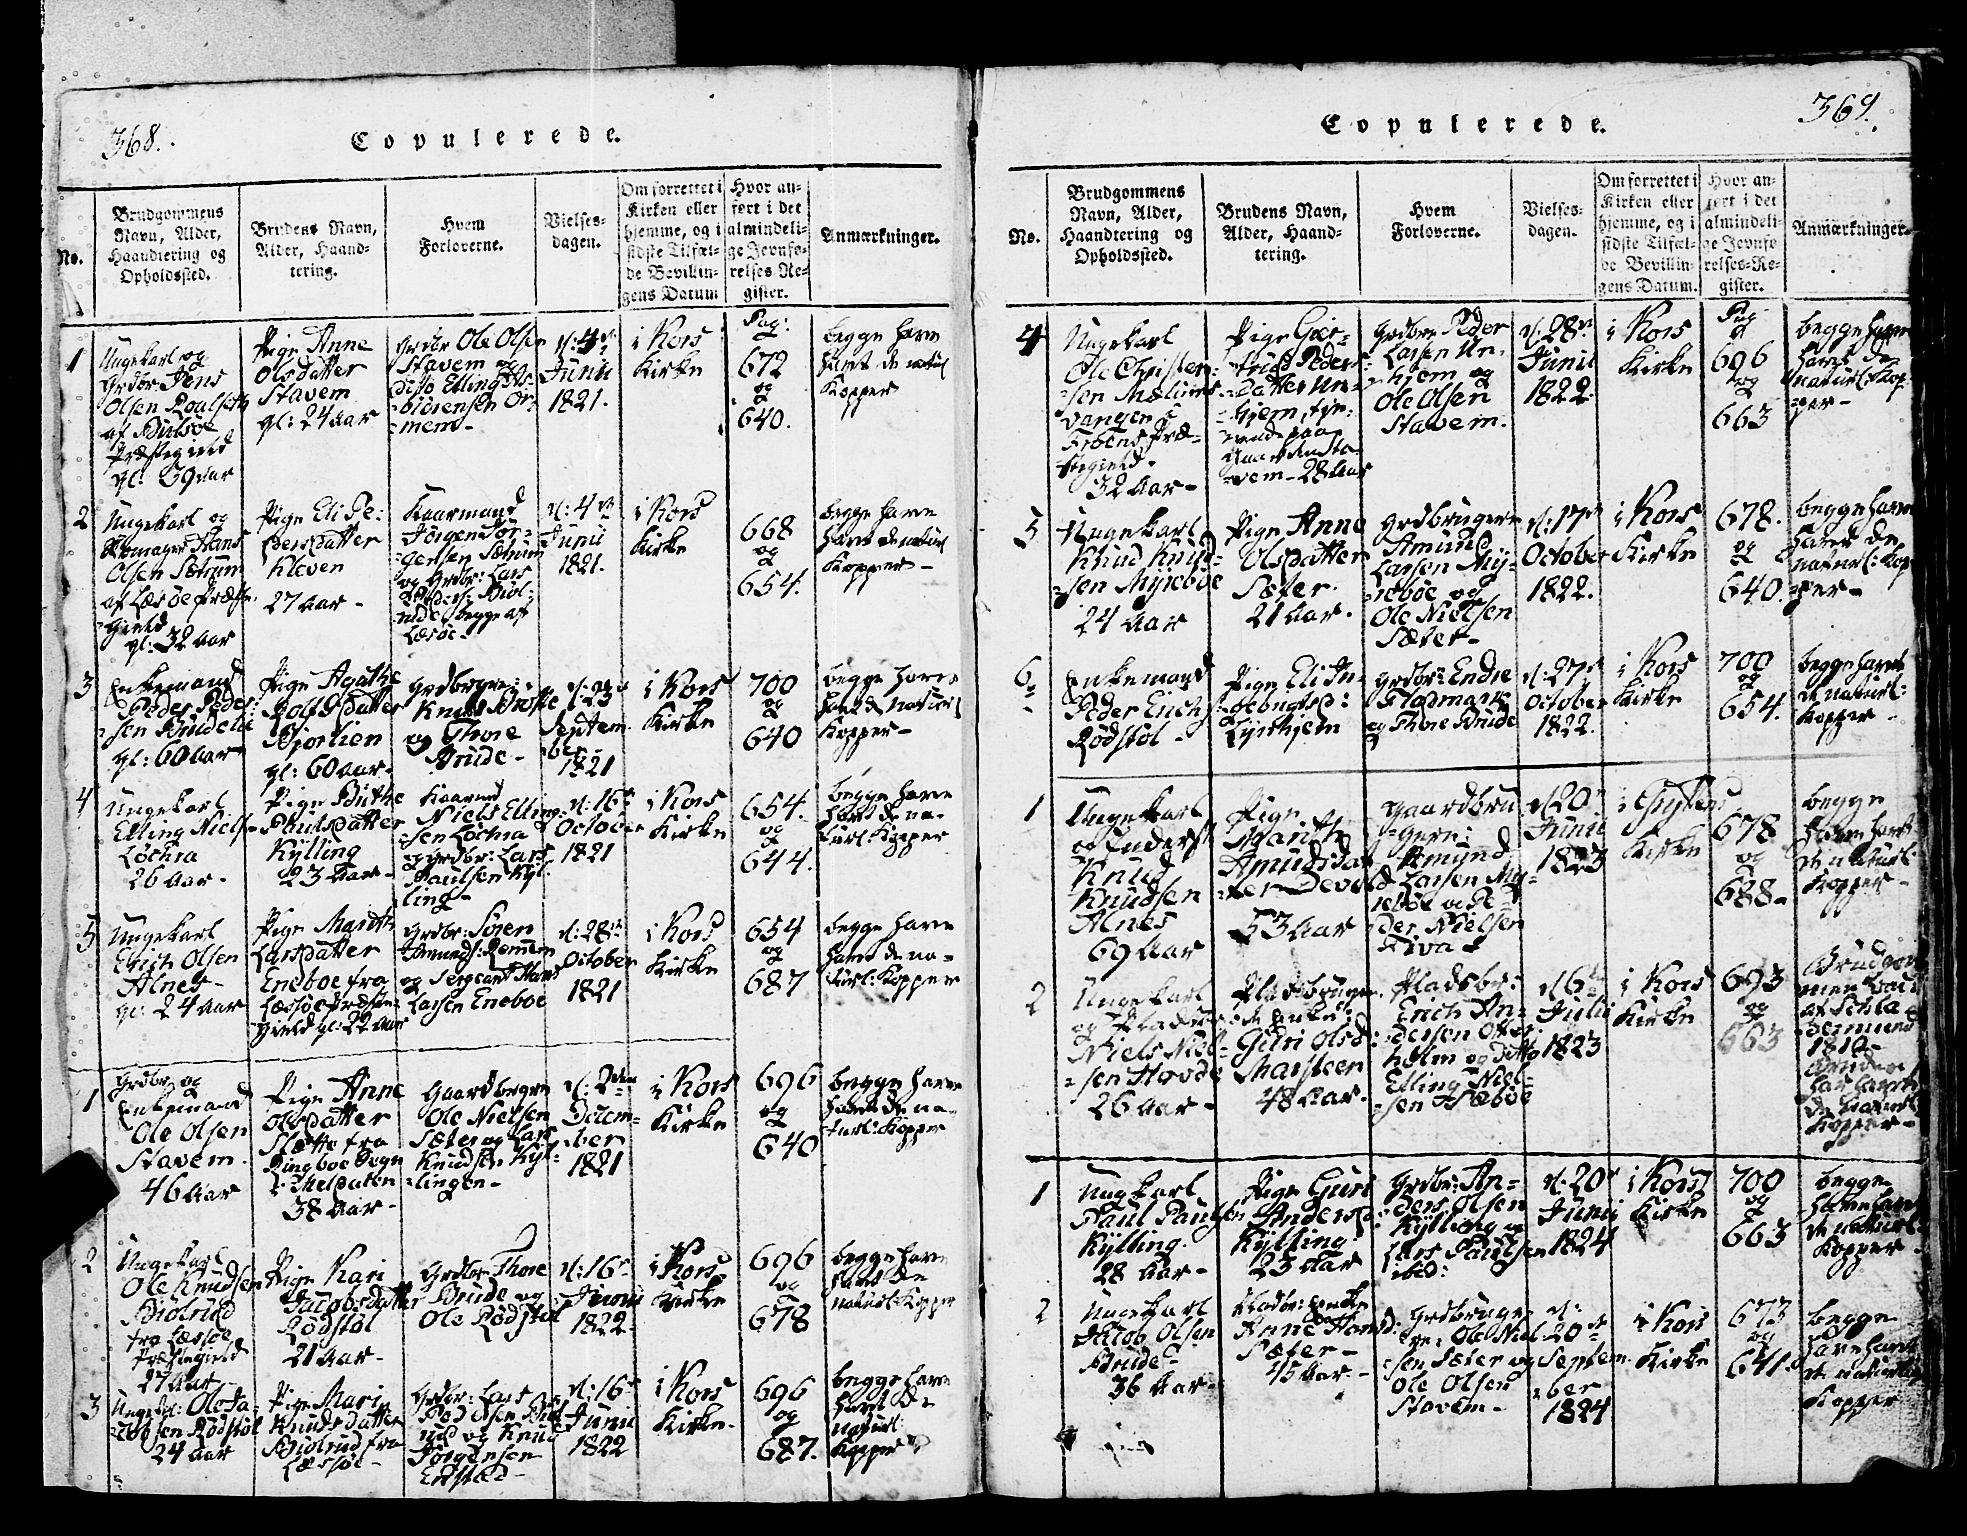 368.
Copulerede.
No.
Brudgommens
Navn, Alder,
Haandtering og
Opholdssted.
Brudens Navn,
Alder, Haand-
tering.
Hvem
Forloverne.
Vielses-
dagen.
Om forrettet i
Kirken eller
hjemme, og i
sidste Tilfæl-
de Bevillin-
gens Datum
Hvor an-
ført i det
almindeli-
ge Jevnfø-
relses-Re-
gister.
Anmærkninger.
1
Ungekarl og
Grdbr: Jens
Olsen
af
Præstegield
gl: 39 aar
Pige Anne
Olsdatter
Stavem
gl: 24 aar
Grdbr Ole Olsen
Stavem og
ditto Elling
Or-
mem-
d: 4de
Junii
1821.
i Kors
Kirke
Pag:
672
og
640.
begge have
havt de naturl
Kopper
2
Ungekarl og
Hans
Olsen Sætrum
af Læsøe Præste-
gield
gl: 32 aar
Pige Eli Pe-
dersdatter
Kleven
27 Aar-
Kaarmand
Jørgen Jør-
gensen Sætrum
og Grdbr: Lars
begge af
Læsøe-
d: 4de
Junii
1821.
i Kors
Kirke
668
og
654.
begge have
havt de naturl
Kopper-
3
Enkemand
Peder Peder-
sen Brudeli
gl: 60 aar-
Pige Agathe
Rolfsdatter
Bjorlien
gl: 60 aar-
Grdbrgre:
Knud Brøste
og Thore
Brude-
d: 23
Septem-
ber
1821
i Kors
Kirke
700
og
640
begge have
havt de naturl
Kopper-
4
Ungekarl
Elling Niels-
Løchra
26 Aar-
Pige Brithe
Paulsdatter
Kylling
23 Aar-
Kaarmd
Niels Elling-
sen Løchra
og Grdbr: Lars
Paulsen Kyl-
ling-
d: 16de
October
1821
i Kors
Kirke
654.
og
644.
begge have
havt de na-
turl: Kopper
5
Ungekarl
Erich Olsen
Alnes-
gl: 24 aar
Pige Marith
Larsdatter
Eneboe fra
Læssøe Præste-
gield gl: 22 Aar
Grdbr: Soren
Amunds: Remmem
og Sergeant Hans
Larsen Eneboe
d: 28de
October
1821
i Kors
Kirke
654
og
687
begge have
havt de na-
turl: Kopper
1
Grdbr og
Enkemand
Ole Olsen
Stavem.
46 Aar
Pige Anne
Olsdatter
Slette fra
Ringboe Sogn
38 Aar-
Gaardbrgrne
Ole Nielsen
Sæter og Lars
Knudsen Kyl-
lingen-
d: 2den
Decem-
ber
1821
i Kors
Kirke
696
og
640
begge have
havt de na-
turl: Kopper
2
Ungekarl
Ole Knudsen
Biolrud
fra Læssøe
Præstegield
27 Aar
Pige Kari
Jacobsdatter
Rødstøl
21 Aar-
Grdbr Thore
Brude og
Ole Rødstøl
d: 16de
Junii
1822-
i Kors
Kirke
696
og
678
begge have
havt de
naturl Kopper
3
Ungekl: Ole Ja-
cobsen Rødstøl
24 Aar
Pige Mari
Knudsdatter
Biolrud fra
Læssøe-
Grdbr: Lars
og Knud
Jørgensen
Enstad-
d: 16de
Junii
1822
i Kors
Kirke-
696
og
687.
begge have
havt de
naturl:
Kopper
369.
Copulerede.
No.
Brudgommens
Navn, Alder,
Haandtering og
Opholdssted.
Brudens Navn,
Alder, Haand-
tering.
Hvem
Forloverne.
Vielses-
dagen.
Om forrettet i
Kirken eller
hjemme, og i
sidste Tilfæl-
de Bevillin-
gens Datum.
Hvor an-
ført i det
almindeli-
ge Jevnfø-
relses-Re-
gister.
Anmærkninger.
4
Ungekarl
Ole Christen-
sen
vangen i
Froens Præ-
stegield.
32 Aar-
Pige Giær-
trud Peders-
datter Un-
hjem, tje-
nende paa
Gaarden Sta-
vem- 28 Aar
Grdbr: Peder
Larsen Un-
hjem og
Ole Olsen
Stavem.
d: 28de
Junii
1822
i Kors
Kirke
Pag
696
og
663
begge have
havt de
naturl: Kop-
per-
5
Ungekarl
Knud Knud-
sen Myreboe
24 Aar
Pige Anne
Olsdatter
Sæter.
21 Aar.
Grdbrugere
Amund
Larsen My-
reboe og
Ole Nielsen
Sæter-
d: 17de
October
1822.
i Kors
Kirke
678.
og
640.
begge have
havt de
naturl: Kop-
per-
6
Enkemand
Peder Erichs:
Rødstøl-
Pige Eli In-
gebrigtsd:
Lyirhjem
Grdbr: Endre
Fladmark
og Thore Brude
d: 27de
October
1822.
i Kors
Kirke
700
og
654.
begge havt
de naturl:
Kopper-
1
Ungekarl
og Inderst
Knud
Knudsen
Alnes
69 Aar
Pige
Marith
Amundsdat-
ter Devold
53 Aar
Gaardbru-
gere:
Amund
Larsen My-
reboe og Pe-
der Nielsen
Fiva-
d 20de
Junii
1823
i Gryttens
Kirke
678
og
688-
begge
have havt
de naturl
Kopper-
2
Ungekarl
og Pladsbr:
Niels Niel-
sen Horde
26 Aar-
Pladsbruger-
Enke:
Guri Olsd:
Marsteen
48 Aar-
Pladsbr:
Erich An-
dersen
holm og ditto
Elling Niel-
sen
d 6te
Julii
1823
i Kors
Kirke
693
og
663
Brudgom-
men Vacc:
af
1810-
Bruden
har havt
de naturl
Kopper-
1
Ungkarl
Paul Paulsen
Kylling.
28 Aar-
Pige Guri
Andersd:
Kylling
23 Aar
Grdbr: An-
ders Olsen
Kylling og
Lars Paulsen
ibid:
d: 20de
Junii
1824
i Kors
Kirke
700
og
663
begge
have havt
de naturl:
Kopper
2
Ungekarl
Jacob Olsen
Brude-
36 Aar-
Pladsbr: Enke
Anne Hansd:
Sæter-
45 Aar.-
Grdbruge-
re: Ole Niel-
sen Sæter og
Ole Olsen
Stavem-
d:
20de
Septem-
ber
1824
i Kors
Kirke
673
og
641.
begge
have havt
de naturlige
Kopper